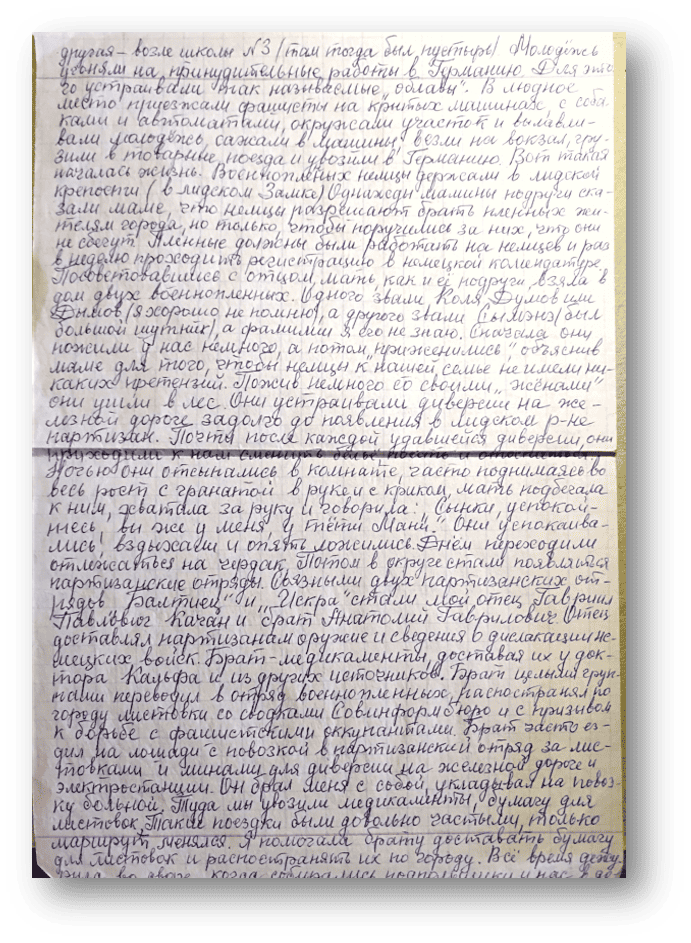 другая – возле школы №3 (там тогда был пустырь). Молодёжь
угоняли на принудительные работы в Германию. Для это-
го устраивали так называемые „облавы“. В людное
место приезжали фашисты на крытых машинах, с соба-
ками и автоматами, окружали участок и вылавли-
вали молодёжь, сажали в машины, везли на вокзал, гру-
зили в товарные поезда и увозили в Германию. Вот такая
началась жизнь. Военнопленных немцы держали в лидской
крепости (в лидском Замке) Однажды мамины подруги ска-
зали маме, что немцы разрешают брать пленных жи-
телям города, но только, чтобы поручились за них, что они
не сбегут. Пленные должны были работать на немцев и раз
в неделю проходить регистрацию в немецкой комендатуре.
Посоветовавшись с отцом, мать, как и её подруги, взяла в
дом двух военнопленных. Одного звали Коля Думов или
Дымов (я хорошо не помню), а другого звали Сымэнэ (был
большой шутник), а фамилии я его не знаю. Сначала они
пожили у нас немного, а потом „приженились“, объяснив
маме для того, чтобы немцы к нашей семье не имели ни-
каких претензий. Пожив немного со своими „жёнами“
они ушли в лес. Они устраивали диверсии на же-
лезной дороге задолго до появления в лидском р-не
партизан. Почти после каждой удавшейся диверсии, они
приходили к нам сменить бельё, поесть и отоспаться.
Ночью они отсыпались в комнате, часто поднимаясь во
весь рост с гранатой в руке и с криком, мать подбегала
к ним, хватала за руку и говорила: „Сынки, успокой-
тесь, вы же у меня, у тёти Мани.“ Они успокаива-
лись, вздыхали и опять ложились. Днём переходили
отлежаться на чердак. Потом в округе стали появляться
партизанские отряды. Связными двух партизанских от-
рядов „Балтиец“ и „Искра“ стали мой отец Гавриил
Павлович Качан и брат Анатолий Гаврилович. Отец
доставлял партизанам оружие и сведения о дислакации не-
мецких войск. Брат – медикаменты, доставая их у док-
тора Кальфа и из других источников. Брат целыми груп-
пами переводил в отряд военнопленных, распостранял по
городу листовки со сводками Совинформбюро и с призывом
к борьбе с фашистскими оккупантами. Брат часто ез-
дил на лошади с повозкой в партизанский отряд за лис-
товками и минами для диверсии на железной дороге и
электростанции. Он брал меня с собой, укладывал на повоз-
ку больной. Туда мы увозили медикаменты, бумагу для
листовок. Такие поездки были довольно частыми, только
маршрут менялся. Я помогала брату доставать бумагу
для листовок и распостранять их по городу. Всё время дежу-
рила во дворе, когда собирались подпольщики у нас в до-